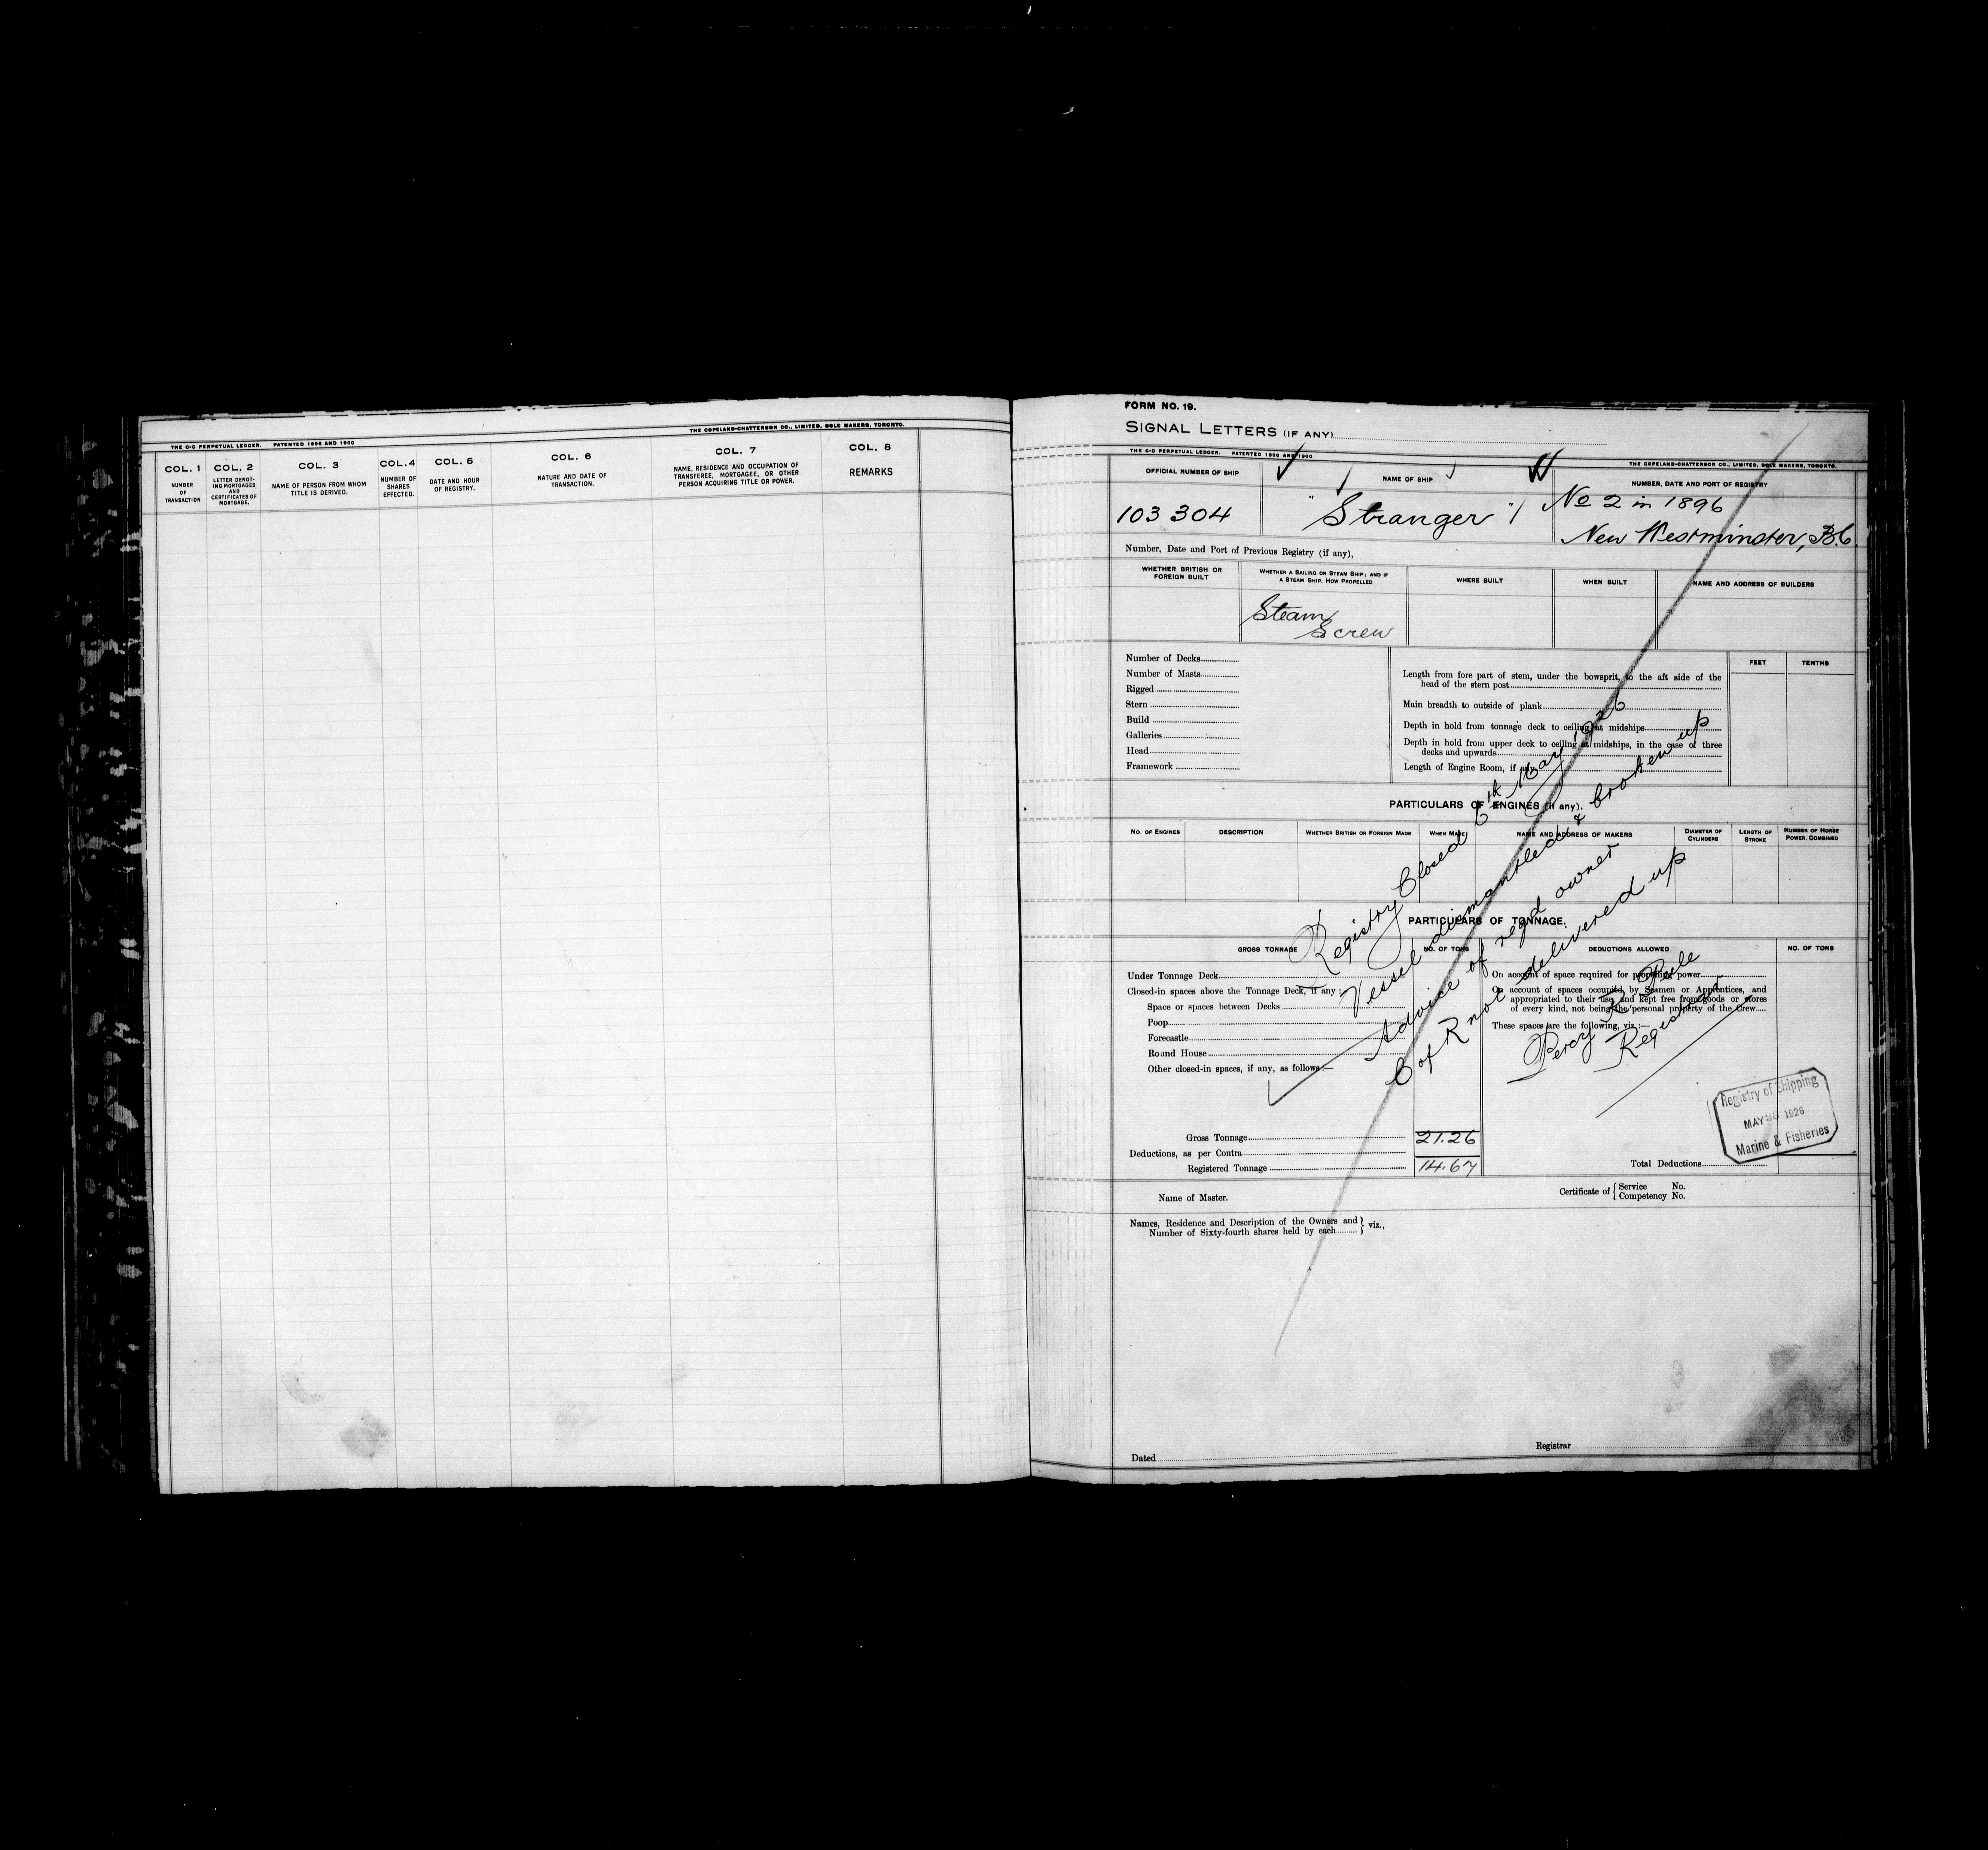 THE C-C PERPETUAL LEDGER. PATENTED 1896 AND 1900
THE COPELAND-CHATTERSON CO., LIMITED, SOLE MAKERS, TORONTO.
COL. 1
NUMBER
OF
TRANSACTION
COL. 2
LETTER DENOT-
ING MORTGAGES
AND
CERTIFICATES OF
MORTGAGE.
COL. 3
NAME OF PERSON FROM WHOM
TITLE IS DERIVED.
COL. 4
NUMBER OF
SHARES
EFFECTED.
COL. 5
DATE AND HOUR
OF REGISTRY.
COL. 6
NATURE AND DATE OF
TRANSACTION.
COL. 7
NAME, RESIDENCE AND OCCUPATION OF
TRANSFEREE, MORTGAGEE, OR OTHER
PERSON ACQUIRING TITLE OR POWER.
COL. 8
REMARKS
FORM NO. 19.
SIGNAL LETTERS (IF ANY)
THE C-C PERPETUAL LEDGER. PATENTED 1896 AND 1900
THE COPELAND-CHATTERSON CO., LIMITED, SOLE MAKERS, TORONTO.
OFFICIAL NUMBER OF SHIP
NAME OF SHIP
NUMBER, DATE AND PORT OF REGISTRY
103 304
"Stranger"
No 2 in 1896
New Westminster, B.C.
Number, Date and Port of Previous Registry (if any),
WHETHER BRITISH OR
FOREIGN BUILT
WHETHER A SAILING OR STEAM SHIP; AND IF
A STEAM SHIP, HOW PROPELLED
WHERE BUILT
WHEN BUILT
NAME AND ADDRESS OF BUILDERS
Steam
Screw
Number of Decks
Number of Masts
Rigged
Stern
Build
Galleries
Head
Framework
FEET
TENTHS
Length from fore part of stem, under the bowsprit, to the aft side of the
head of the stern post
Main breadth to outside of plank
Depth in hold from tonnage deck to ceiling at midships
Depth in hold from upper deck to ceiling at midships, in the case of three
decks and upwards
Length of Engine Room, if any
PARTICULARS OF ENGINES (if any).
NO. OF ENGINES
DESCRIPTION
WHETHER BRITISH OR FOREIGN MADE
WHEN MADE
NAME AND ADDRESS OF MAKERS
DIAMETER OF
CYLINDERS
LENGTH OF
STROKE
NUMBER OF HORSE
POWER, COMBINED
Registry Closed 6th May 1926
Vessel dismantled & broken up
Advice of regd owner
C of R not delivered up
Percy
Registrar
PARTICULARS OF TONNAGE.
GROSS TONNAGE
NO. OF TONS
DEDUCTIONS ALLOWED
NO. OF TONS
Under Tonnage Deck
Closed-in spaces above the Tonnage Deck, if any:
Space or spaces between Decks
Poop
Forecastle
Round House
Other closed-in spaces, if any, as follows:—
On account of space required for propelling power
On account of spaces occupied by Seamen or Apprentices, and
appropriated to their use, and kept free from goods or stores
of every kind, not being the personal property of the Crew
These spaces are the following, viz.:—
Registry of Shipping
MAY 1926
Marine & Fisheries
Gross Tonnage
21.26
Deductions, as per Contra
Registered Tonnage
14.67
Total Deductions
Name of Master.
Certificate of { Service No.
Competency No.
Names, Residence and Description of the Owners and
Number of Sixty-fourth shares held by each } viz.,
Dated
Registrar